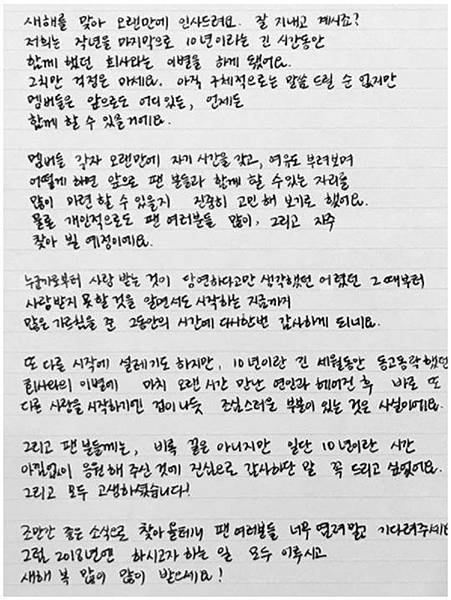 새해를 맞아 오랜만에 인사드려요. 잘 지내고 계시죠?
저희는 작년을 마지막으로 10년이라는 긴 시간동안
함께 했던 회사와는 이별을 하게 됐어요.
그치만 걱정은 마세요. 아직 구체적으로는 말씀 드릴 순 없지만
멤버들은 앞으로도 어디있든, 언제든
함께 할 수 있을거에요.
멤버들 각자 오랜만에 자기 시간을 갖고, 여유도 부려보며
어떻게 하면 앞으로 팬 분들과 함께 할 수 있는 자리를
많이 마련 할 수 있을지 진중히 고민 해 보기로 했어요.
물론 개인적으로도 팬 여러분들 많이, 그리고 자주
찾아 뵐 예정이에요.
누군가로부터 사랑 받는 것이 당연하다고만 생각했던 어렸던 그 때부터
사랑받지 못할 것을 알면서도 시작하는 지금까지
많은 가르침을 준 그동안의 시간에 다시한번 감사하게 되네요.
또 다른 시작에 설레기도 하지만, 10년이란 긴 세월동안 동고동락했던
회사와의 이별에 마치 오랜 시간 만난 연인과 헤어진 후 바로 또
다른 사랑을 시작하기엔 겁이 나듯 조심스러운 부분이 있는 것은 사실이에요.
그리고 팬 분들께는, 비록 끝은 아니지만 일단 10년이란 시간
아낌없이 응원 해 주신 것에 진심으로 감사하단 말 꼭 드리고 싶었어요.
그리고 모두 고생하셨습니다!
조만간 좋은 소식으로 찾아 올테니 팬 여러분들 너무 염려말고 기다려주세요
그럼 2018년엔 하시고자 하는 일 모두 이루시고
새해 복 많이 많이 받으세요!